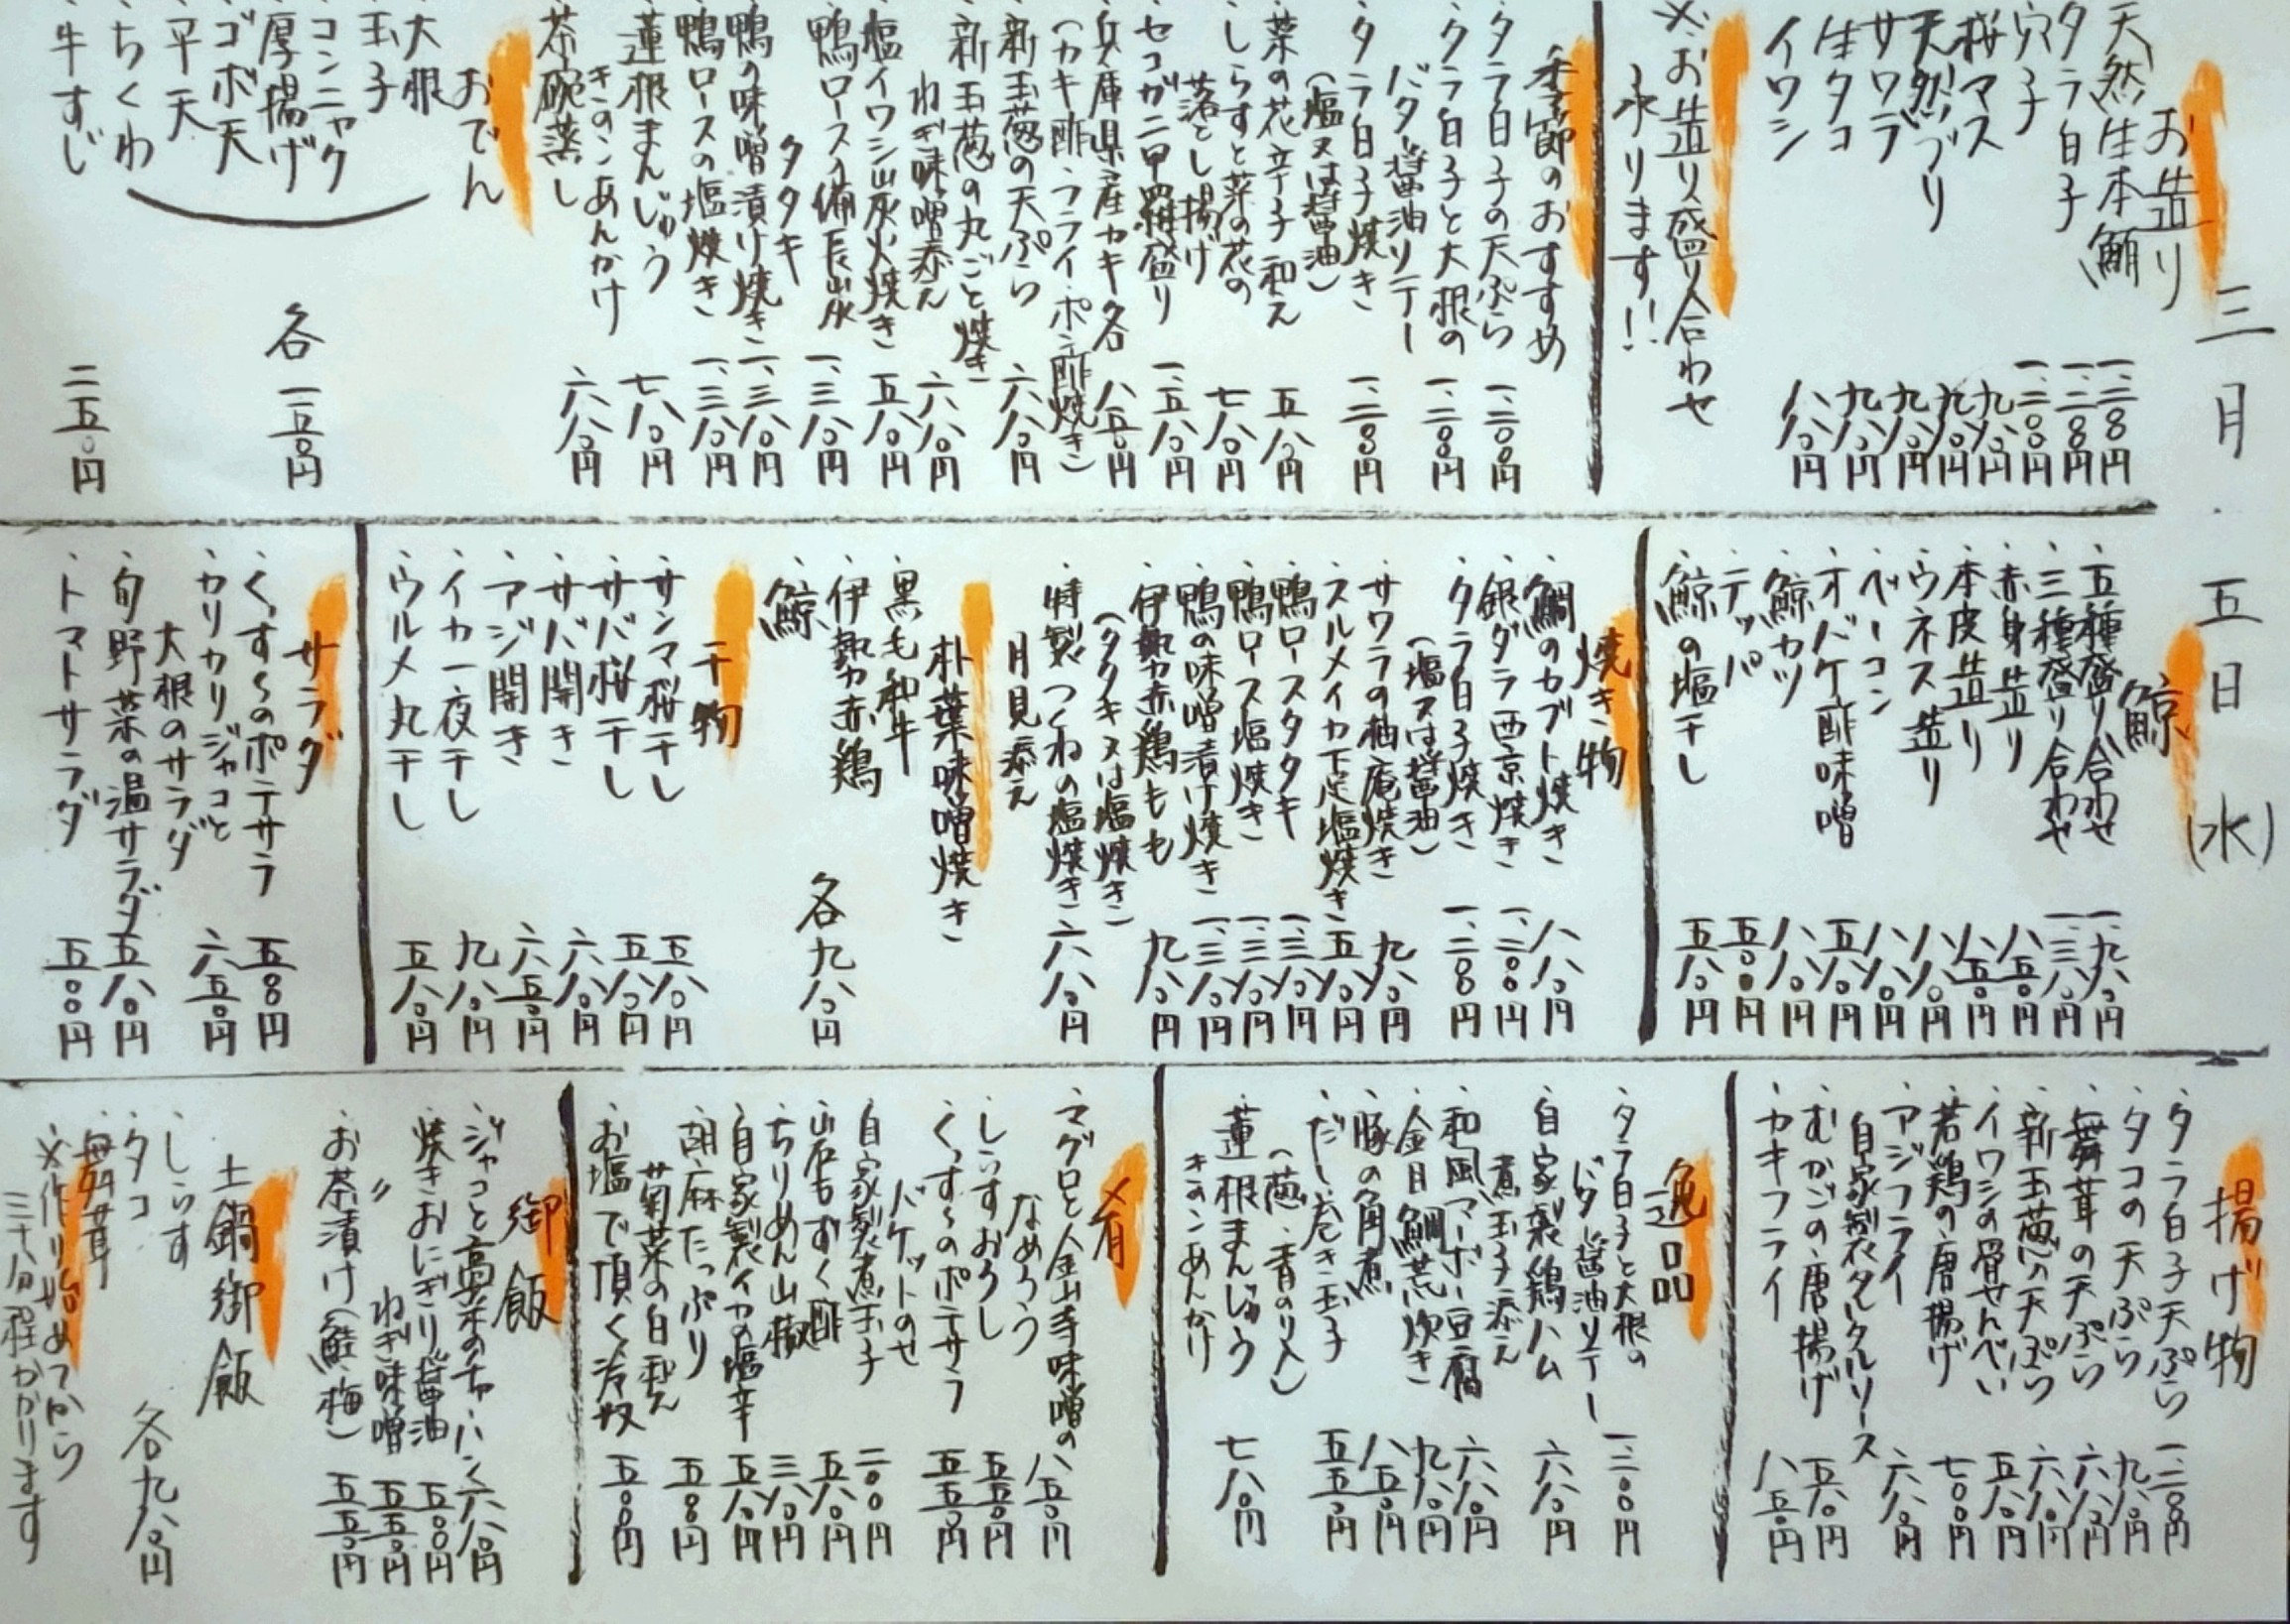 三月五日(水)
お造り
・天然生本鮪 一、二〇〇円
・タラ白子 一、二〇〇円
・穴子 一、二〇〇円
・桜マス 九八〇円
・天然ブリ 九八〇円
・サワラ 九八〇円
・生タコ 九八〇円
・イワシ 八八〇円
※お造り盛り合わせ
承ります!!
季節のおすすめ
・タラ白子の天ぷら 一、二〇〇円
・タラ白子と大根の
バター醤油ソテー 一、二〇〇円
・タラ白子焼き
(塩又は醤油) 一、二〇〇円
・菜の花辛子和え 五八〇円
・しらすと菜の花の
落とし揚げ 七八〇円
・セコガニ甲羅盛り 一、五八〇円
・兵庫県産カキ 各八五〇円
(カキ酢・フライ・ポン酢焼き)
・新玉葱の天ぷら 六八〇円
・新玉葱の丸ごと焼き
ねぎ味噌添え 六八〇円
・塩イワシ炭火焼き 五八〇円
・鴨ロースの備長炭
タタキ 一、三八〇円
・鴨の味噌漬け焼き 一、三八〇円
・鴨ロースの塩焼き 一、三八〇円
・蓮根まんじゅう
きのこあんかけ 七八〇円
・茶碗蒸し 六八〇円
おでん
・大根
・玉子
・コンニャク
・厚揚げ
・ゴボ天
・平天
・ちくわ
各一五〇円
・牛すじ 二五〇円
鯨
・五種盛り合わせ 一、九八〇円
・三種盛り合わせ 一、三八〇円
・赤身造り 八五〇円
・本皮造り 八五〇円
・ウネス造り 八八〇円
・ベーコン 八八〇円
・オバケ酢味噌 五八〇円
・鯨カツ 八八〇円
・テッパ 五〇〇円
・鯨の塩干し 五八〇円
焼き物
・鯛のカブト焼き 八八〇円
・銀ダラ西京焼き 一、二〇〇円
・タラ白子焼き
(塩又は醤油) 一、二〇〇円
・サワラの柚庵焼き 九八〇円
・スルメイカ下足塩焼き 五八〇円
・鴨ロースタタキ 一、三八〇円
・鴨ロース塩焼き 一、三八〇円
・鴨の味噌漬け焼き 一、三八〇円
・伊勢赤鶏もも
(タタキ又は塩焼き) 九八〇円
・特製つくねの塩焼き
月見添え 六八〇円
朴葉味噌焼き
・黒毛和牛
・伊勢赤鶏
・鯨
各九八〇円
干物
・サンマ桜干し 五八〇円
・サバ桜干し 五八〇円
・サバ開き 六八〇円
・アジ開き 六五〇円
・イカ一夜干し 九八〇円
・ウルメ丸干し 五八〇円
サラダ
・くっすーのポテサラ 五五〇円
・カリカリジャコと
大根のサラダ 六五〇円
・旬野菜の温サラダ 五八〇円
・トマトサラダ 五〇〇円
揚げ物
・タラ白子天ぷら 一、二〇〇円
・タコの天ぷら 九八〇円
・舞茸の天ぷら 六八〇円
・新玉葱の天ぷら 六八〇円
・イワシの骨せんべい 五八〇円
・若鶏の唐揚げ 七〇〇円
・アジフライ
自家製タルタルソース 六八〇円
・むかごの唐揚げ 五八〇円
・カキフライ 八五〇円
逸品
・タラ白子と大根の
バター醤油ソテー 一、二〇〇円
・自家製鶏ハム
煮玉子添え 六八〇円
・和風マーボー豆腐 六八〇円
・金目鯛荒炊き 九八〇円
・豚の角煮 八五〇円
・だし巻き玉子
(葱・青のり入) 五五〇円
・蓮根まんじゅう
きのこあんかけ 七八〇円
肴
・マグロと金山寺味噌の
なめろう 八五〇円
・しらすおろし 五五〇円
・くっすーのポテサラ
バケットのせ 五五〇円
・自家製煮玉子 二〇〇円
・岩もずく酢 五八〇円
・ちりめん山椒 三八〇円
・自家製イカの塩辛 五八〇円
・胡麻たっぷり
菊菜の白和え 五五〇円
・お塩で頂く冷奴 五〇〇円
御飯
・ジャコと高菜のチャーハン 六八〇円
・焼きおにぎり醤油 五〇〇円
〃 ねぎ味噌 五五〇円
・お茶漬け(鮭・梅) 五五〇円
土鍋御飯
・しらす
・タコ
・舞茸
各九八〇円
※作り始めてから
三十分程かかります